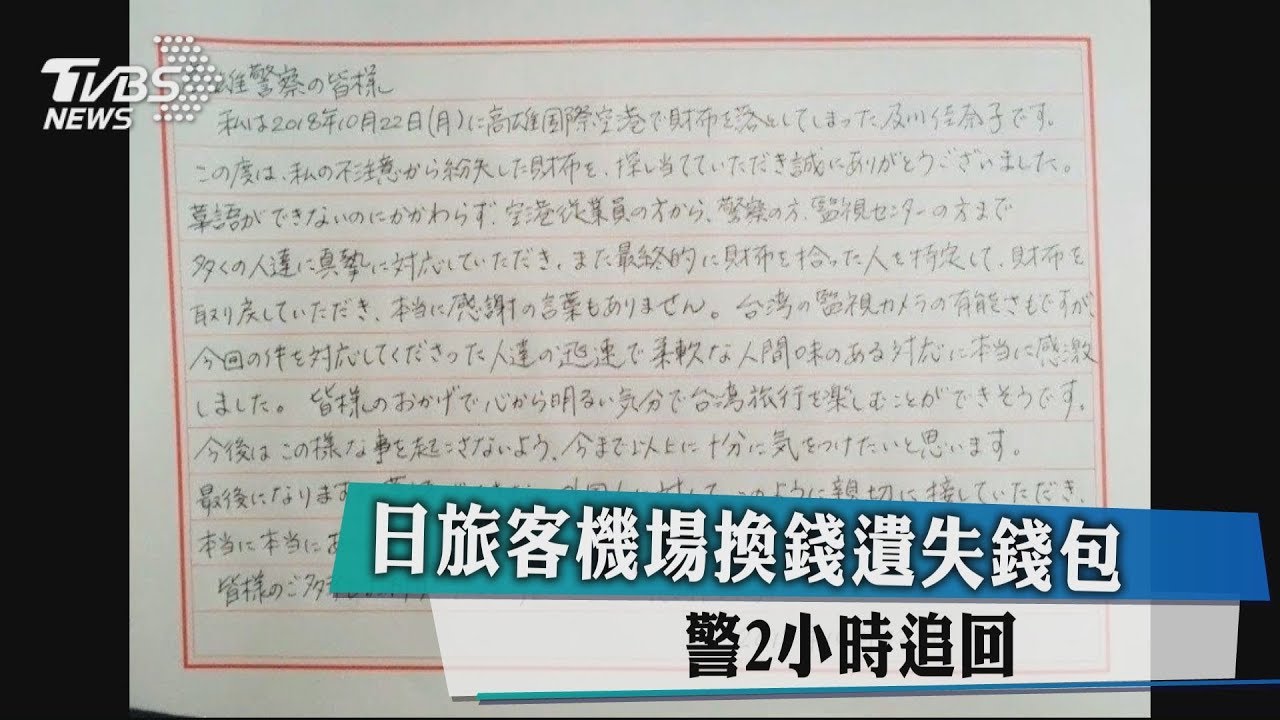 TVBS
NEWS
雄警察の皆様
私は2018年10月22日(月)に高雄国際空港で財布を落としてしまった及川佳奈子です。
この度は、私の不注意から紛失した財布を、探し当てていただき誠にありがとうございました。
葉語ができないのにかかわらず、空港従業員の方から、警察の方、監視センターの方まで
多くの人達に真摯に対応していただき、また最終的に財布を拾った人を特定して、財布を
取り戻していただき、本当に感謝の言葉もありません。台湾の監視カメラの有能さもですが、
今回の件を対応してくださった人達の迅速で柔軟な人間味のある対応に本当に感激
しました。皆様のおかげで心から明るい気分で台湾旅行を楽しむことができそうです。
今後はこの様な事を起こさないよう、今まで以上に十分に気をつけたいと思います。
最後になります 親切に接していただき、
本当に本当に
皆様のご多
日旅客機場換錢遺失錢包
警2小時追回